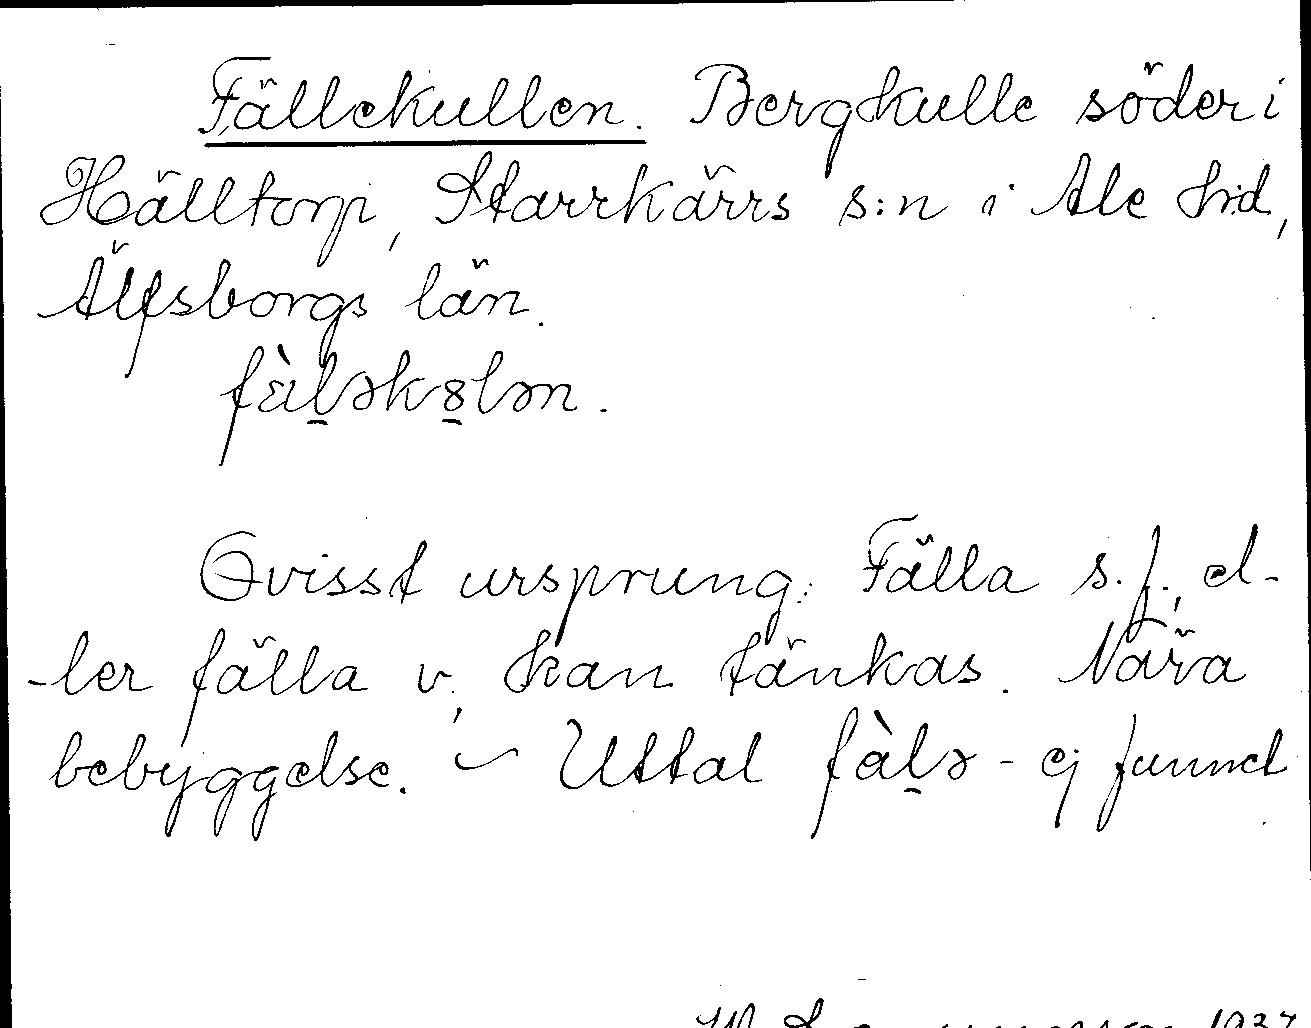 Fällekullen. Bergkulle söder i
Hälltorp, Starrkärrs s:n i Ale hd,
Älfsborgs län.
fæ̀l̠ək8̠lən.
Ovisst ursprung: Fälla s. f., el-
-ler fälla v, kan tänkas. Nära
bebyggelse. – Uttal fàl̠ə - ej funnet
1937